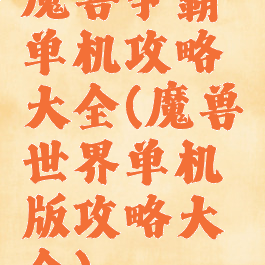 魔兽争霸
单机攻略
大全(魔兽
世界单机
版攻略大
全)